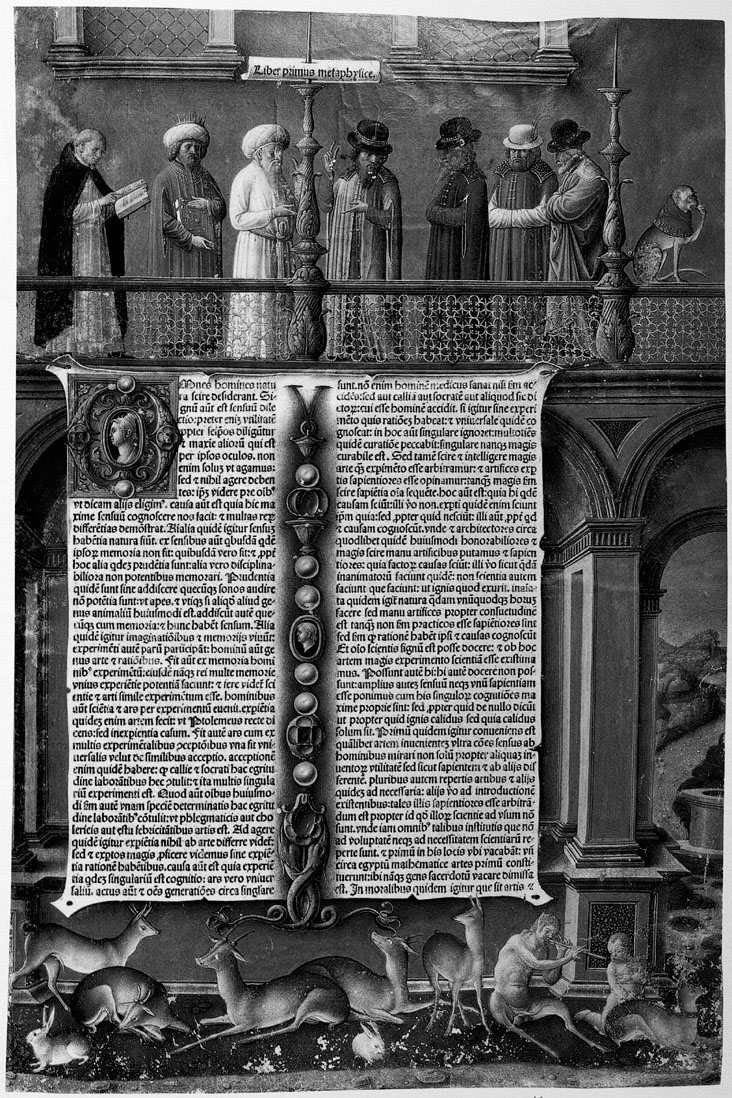 Liber primus metaphysice.
Omnes homines natu
ra scire desiderant. Si-
gnū aūt est sensuū dile
ctio: preter eniȝ vtilitatē
ꝓpter seipsos diligūtur
et maxie alioruȝ qui est
per ipsos oculos. non
enim soluȝ vt agamus:
sed ⁊ nihil agere deben
tes: ip̄ȝ videre pre oīb⁹
vt dicam alijs eligim⁹. causa aūt est quia hic ma
xime sensuū cognoscere nos facit: ⁊ multas reꝝ
differētias demōstrat. Aīalia quidē igitur sensuȝ
habētia natura fiūt. ex sensibus aūt qbusdā qdē
ipsoꝝ memoria non fit: quibusdā vero fit: ⁊ ꝓpt̄
hoc alia qdeȝ prudētia sunt: alia vero disciplina-
biliora non potentibus memorari. Prudentia
quidē sunt sine addiscere quecūqȝ sonos audire
nō potētia sunt: vt apes. ⁊ vtiqȝ si aliqd̄ aliud ge-
nus animaliū huiusmodi est. addiscūt autē que-
cūqȝ cum memoria: ⁊ hunc habēt sensum. Alia
quidē igitur imaginatiōibus ⁊ memorijs viuūt:
experimēti autē parū participāt: hominū aūt ge
nus arte ⁊ ratiōibus. Fit aūt ex memoria homi
nib⁹ experimētū: eiusdē nāqȝ rei multe memorie
vnius experiētie potentiā faciunt: ⁊ fere videt̄ sci
entie ⁊ arti simile experimētum esse. hominibus
aūt sciētia ⁊ ars per experimentū euenit. expiētia
quideȝ enim artem fecit: vt Ptolemeus recte di
cens: sed inexpientia casum. Fit autē ars cum ex
multis experimētalibus ꝯceptōibus vna fit vni-
uersalis velut de similibus acceptio. acceptionē
enim quidē habere: qꝫ callie ⁊ socrati hac egritu
dine laborātibus hec ꝯtulit: ⁊ ita multis singula
riū experimenti est. Quod aūt oībus huiusmo-
di fm̄ autē vnam speciē determinatis hac egritu
dine laborātib⁹ cōtulit: vt phlegmaticis aut cho
lericis aut estu febricitātibus artis est. Ad agere
quidē igitur expiētia nihil ab arte differre videt̄:
sed ⁊ exptos magis ꝓficere videmus sine expiē-
tia rationē habētibus. causa aūt est quia experiē
tia qdeȝ singulariū est cognitio: ars vero vniuer
saliū. actus aūt ⁊ oēs generatiōes circa singlare
sunt. nō enim hominē medicus sanat nisi fm̄ ac-
cidēs: sed aut calliā aut socratē aut aliquod sic di
ctoꝝ: cui esse hominē accidit. si igitur sine experi
mēto quis ratiōeȝ habeat: ⁊ vniuersale quidē co
gnoscat: in hoc aūt singulare ignoret: multotiēs
quidē curatiōe peccabit: singulare nanqȝ magis
curabile est. Sed tamē scire ⁊ intelligere magis
arte qꝫ expimēto esse arbitramur: ⁊ artifices exp
tis sapientiores esse opinamur: tanqȝ magis fm̄
scire sapiētia oīa sequēte. hoc aūt est: quia hi qdē
causam sciūt: illi ꝟo non. expti quidē enim sciunt
ip̄m quia: sed ꝓpter quid nesciūt: illi aūt ꝓpt̄ qd
⁊ causam cognoscūt. vnde ⁊ architectores circa
quodlibet quidē huiusmodi honorabiliores ⁊
magis scire manu artificibus putamus ⁊ sapien
tiores: quia factoꝝ causas sciūt: illi ꝟo sicut qdā
inanimatorū faciunt quidē: non scientia autem
faciunt que faciunt: ut ignis quod exurit. inaīa-
ta quidem igit̄ natura qdam vnūquodqȝ horuȝ
facere sed manu artifices propter consuetudinē
est tanqȝ non fm̄ practicos esse sapiētiores sint
sed fm̄ qꝫ rationē habēt ip̄i ⁊ causas cognoscūt
Et oīo scientis signū est posse docere: ⁊ ob hoc
artem magis experimento scientiā esse existima
mus. Possunt autē hi: hi autē docere non pos-
sunt: amplius autē sensuū neqȝ vnū sapientiam
esse ponimus cum his singuloꝝ cognitiōes ma
xime proprie sint: sed ꝓpter quid de nullo dicūt
ut propter quid ignis calidus sed quia calidus
solum sit. Primū quidem igitur conueniens est
quālibet artem inuenientē vltra cōēs sensus ab
hominibus mirari non solū propter aliquaȝ in-
uentoꝝ vtilitatē sed sicut sapientem ⁊ ab alijs dif
ferentē. pluribus autem repertis artibus ⁊ alijs
quideȝ ad necessaria: alijs ꝟo ad introductionē
existentibus: tales illis sapientiores esse arbitrā-
dum est propter id qd̄ illoꝝ scientie ad vsum nō
sunt. vnde iam omnib⁹ talibus institutis que nō
ad voluptatē neqȝ ad necessitatem scientiarū re-
perte sunt. ⁊ primū in his locis vbi vacabāt: vn
circa egyptū mathematice artes primū consti-
tuerunt: ibi nāqȝ gens sacerdotū vacare dimissa
est. In moralibus quidem igitur que sit artis ⁊